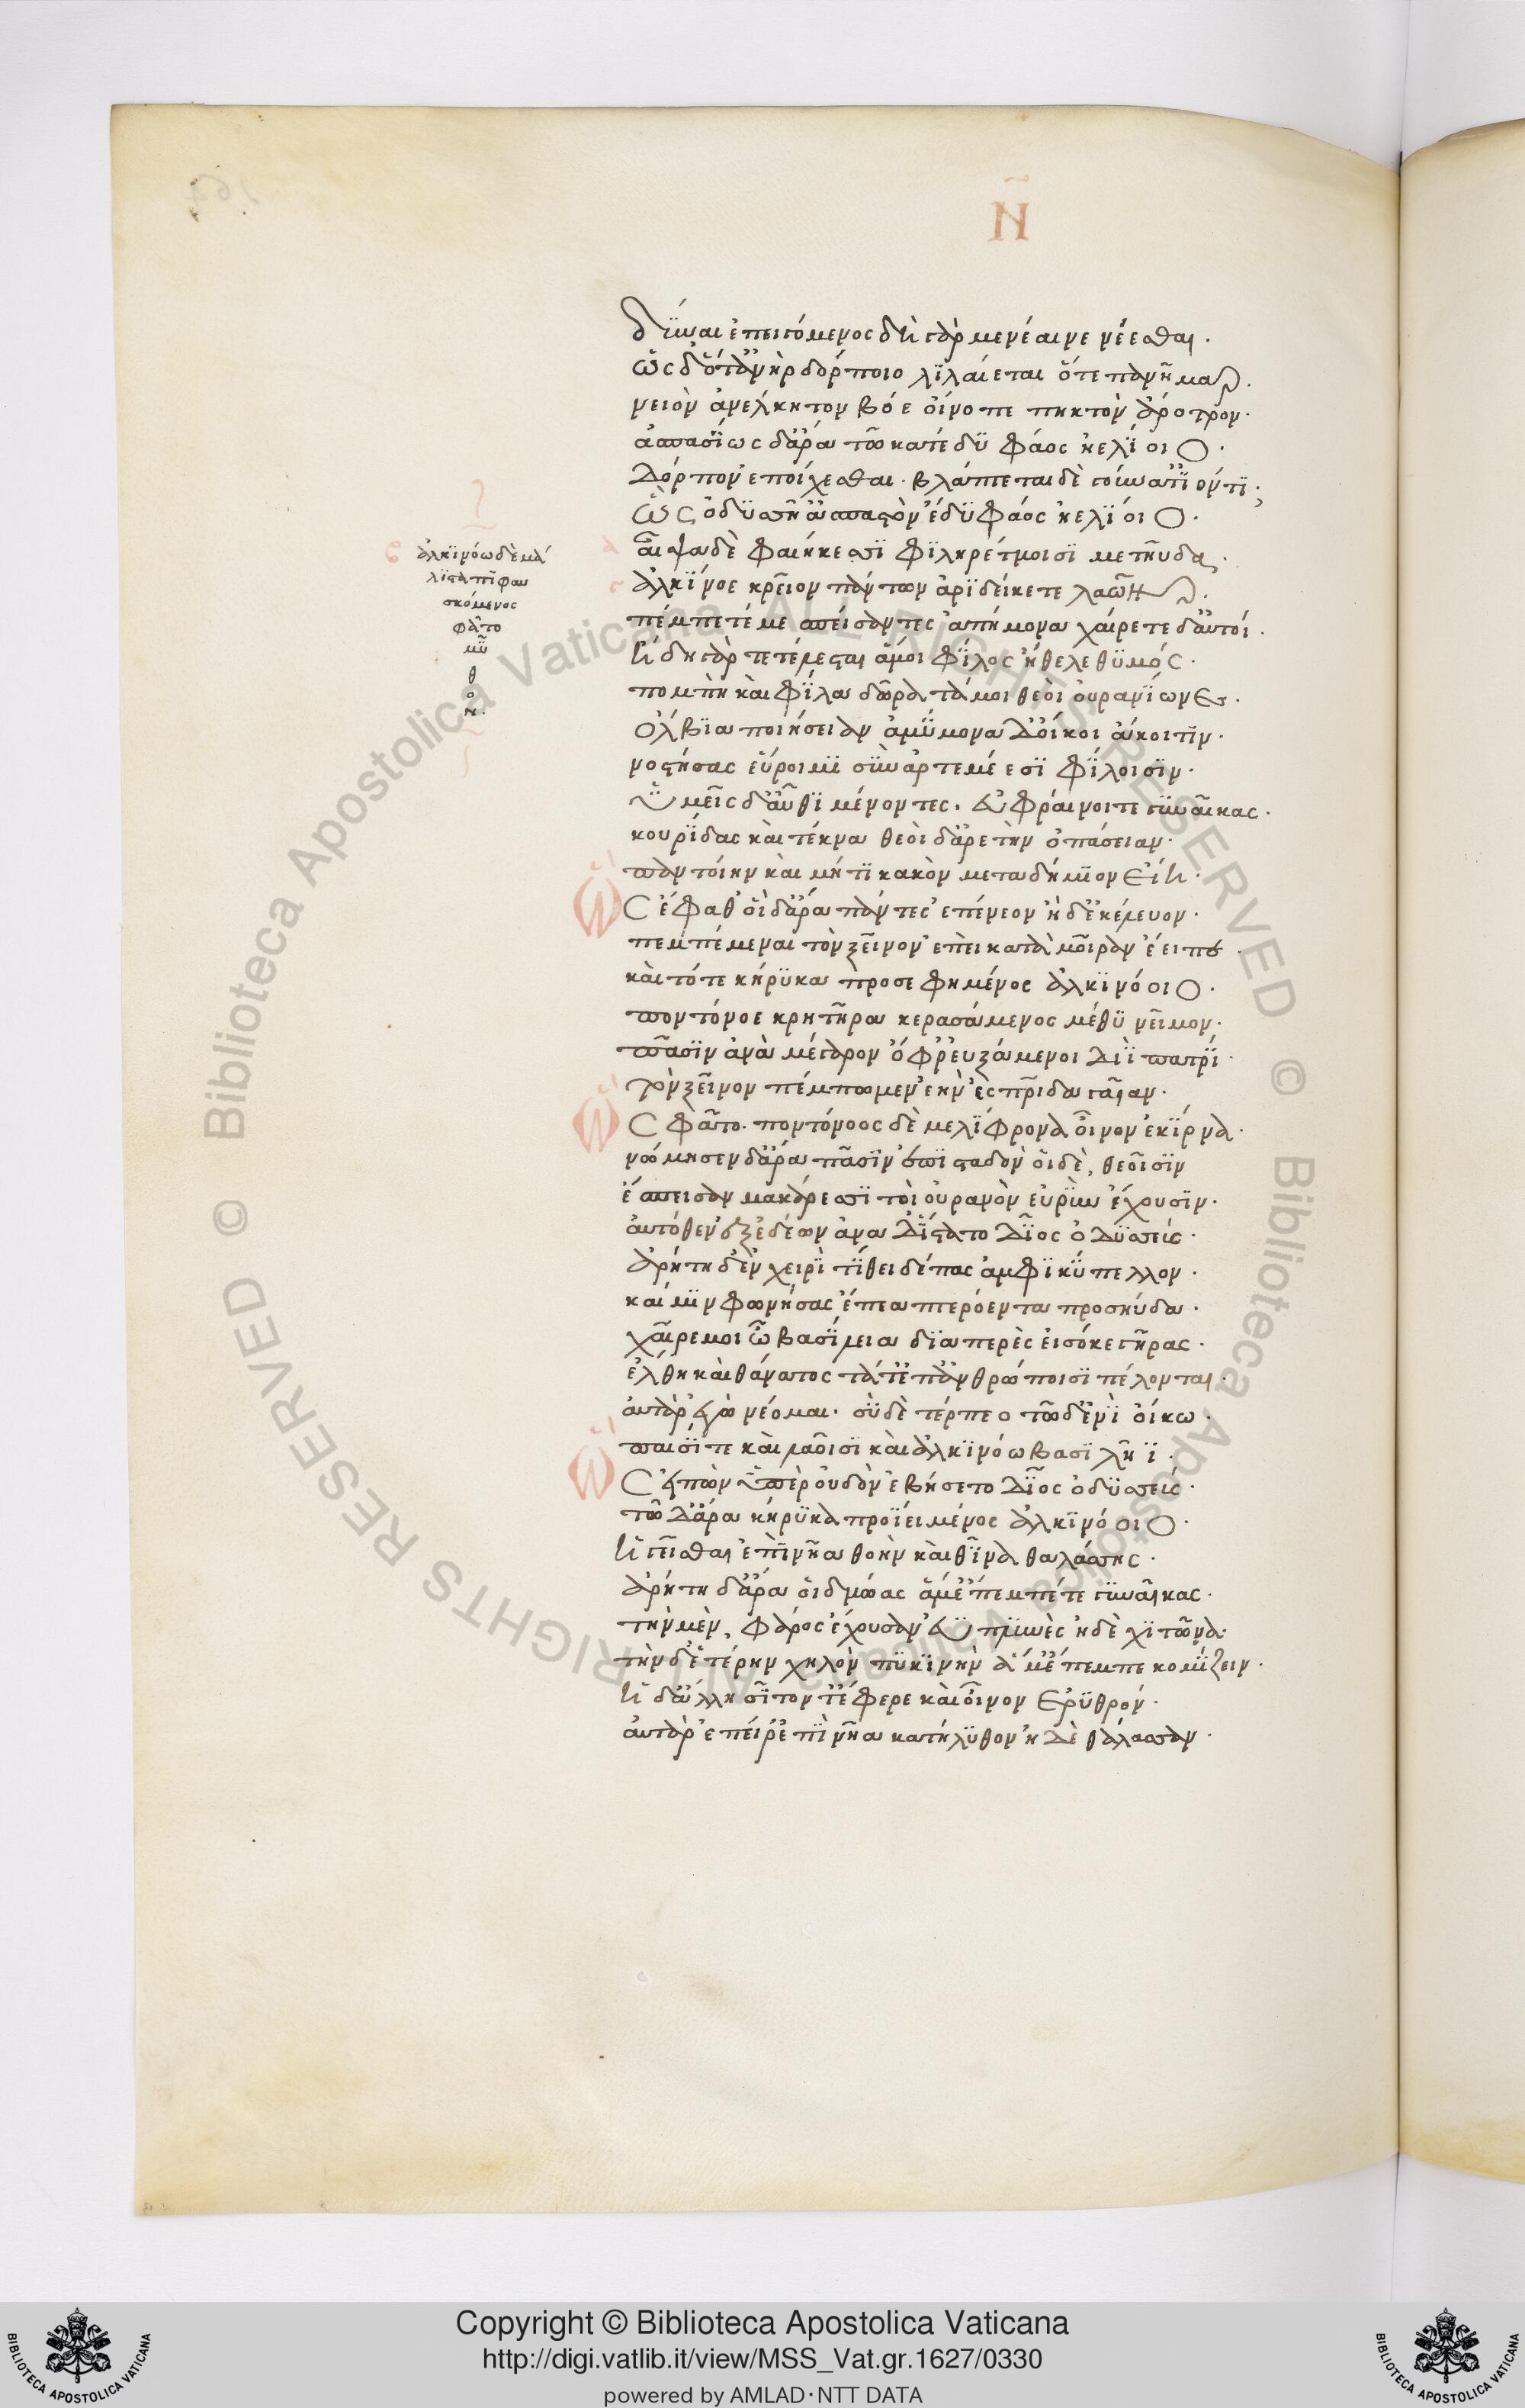 Ν
δῦναι ἐπειγόμενος δὴ γὰρ μενέαινε νέεσθαι·
ὡς δ' ὅτ' ἀνὴρ δόρποιο λιλαίεται ὅτε πανῆμαρ·
νειὸν ἀνέλκητον βόε οἴνοπε πηκτὸν ἄροτρον·
ἀσπασίως δ' ἄρα τῶ κατέδυ φάος ἠελίοιο·
δόρπον ἐποίχεσθαι· βλάπτεται δὲ γούνατ' ἰόντι·
ὣς ὀδυσῆ ἀσπαστὸν ἔδυ φάος ἠελίοιο·
αἶψα δὲ φαιήκεσσι φιληρέτμοισι μετηύδα·
ἀλκινόω δὲ μά
λιστα πιφαυ
σκόμενος
φάτο
μῦ
θ
ο
ν·
ἀλκίνοε κρεῖον πάντων ἀριδείκετε λαῶν·
πέμπετέ με σπείσαντες ἀπήμονα χαίρετε δ' αὐτοί·
ἤδη γὰρ τετέλεσται ἅ μοι φίλος ἤθελε θυμός·
πομπὴ καὶ φίλα δῶρα τά μοι θεοὶ οὐρανίωνες·
ὄλβια ποιήσειαν ἀμύμονα δ' οἴκοι ἄκοιτιν·
νοστήσας εὕροιμι σὺν ἀρτεμέεσι φίλοισιν·
ὑμεῖς δ' αὖθι μένοντες· εὐφραίνοιτε γυναῖκας·
κουρίδας καὶ τέκνα θεοὶ δ' ἀρετὴν ὀπάσειαν·
παντοίην καὶ μή τι κακὸν μεταδήμιον εἴη·
Ὣς ἔφαθ' οἱ δ' ἄρα πάντες ἐπήνεον ἠδ' ἐκέλευον·
πεμπέμεναι τὸν ξεῖνον ἐπεὶ κατὰ μοῖραν ἔειπε·
καὶ τότε κήρυκα προσέφη μένος ἀλκινόοιο·
ποντόνοε κρητῆρα κερασάμενος μέθυ νεῖμον·
πᾶσιν ἀνὰ μέγαρον ὄφρ' εὐξάμενοι Διὶ πατρί·
τὸν ξεῖνον πέμπωμεν ἑὴν ἐς πρίδα γαῖαν·
Ὣς φάτο· ποντόνοος δὲ μελίφρονα οἶνον ἐκίρνα·
νώμησεν δ' ἄρα πᾶσιν ἐπισταδὸν οἱ δὲ, θεοῖσιν
ἔσπεισαν μακάρεσσι τοὶ οὐρανὸν εὐρὺν ἔχουσιν·
αὐτόθεν ἐξ ἑδέων ἀνα δ' ἵστατο δῖος ὀδυσσεύς·
ἀρήτη δ' ἐν χειρὶ τίθει δέπας ἀμφικύπελλον·
καί μιν φωνήσας ἔπεα πτερόεντα προσηύδα·
χαῖρέ μοι ὦ βασίλεια διαμπερὲς εἰσόκε γῆρας·
ἔλθη καὶ θάνατος τά τ' ἐπ' ἀνθρώποισι πέλονται·
αὐτὰρ ἐγὼ νέομαι· σὺ δὲ τέρπεο τῶδ' ἐνὶ οἴκω·
παισί τε καὶ λαοῖσι καὶ ἀλκινόω βασιλῆϊ·
Ὣς εἰπὼν ὑπὲρ οὐδὸν ἐβήσετο δῖος ὀδυσσεύς·
τῶ δ' ἄρα κήρυκα προΐει μένος ἀλκινόοιο·
ἡγεῖσθαι ἐπὶ νῆα θοὴν καὶ θῖνα θαλάσσης·
ἀρήτη δ' ἄρα οἱ δμωὰς ἅμ' ἔπεμπέ τε γυναῖκας·
τὴν μὲν, φάρος ἔχουσαν ἐϋπλυνὲς ἠδὲ χιτῶνα·
τὴν δ' ἑτέρην χηλὸν πυκινὴν ἅμ' ἔπεμπε κομίζειν·
ἡ δ' ἄλλη σῖτόν τ' ἔφερε καὶ οἶνον ἐρυθρόν·
αὐτὰρ ἐπεί ῥ' ἐπὶ νῆα κατήλυθον ἠδὲ θάλασσαν·
Copyright © Biblioteca Apostolica Vaticana
http://digi.vatlib.it/view/MSS_Vat.gr.1627/0330
powered by AMLAD·NTT DATA